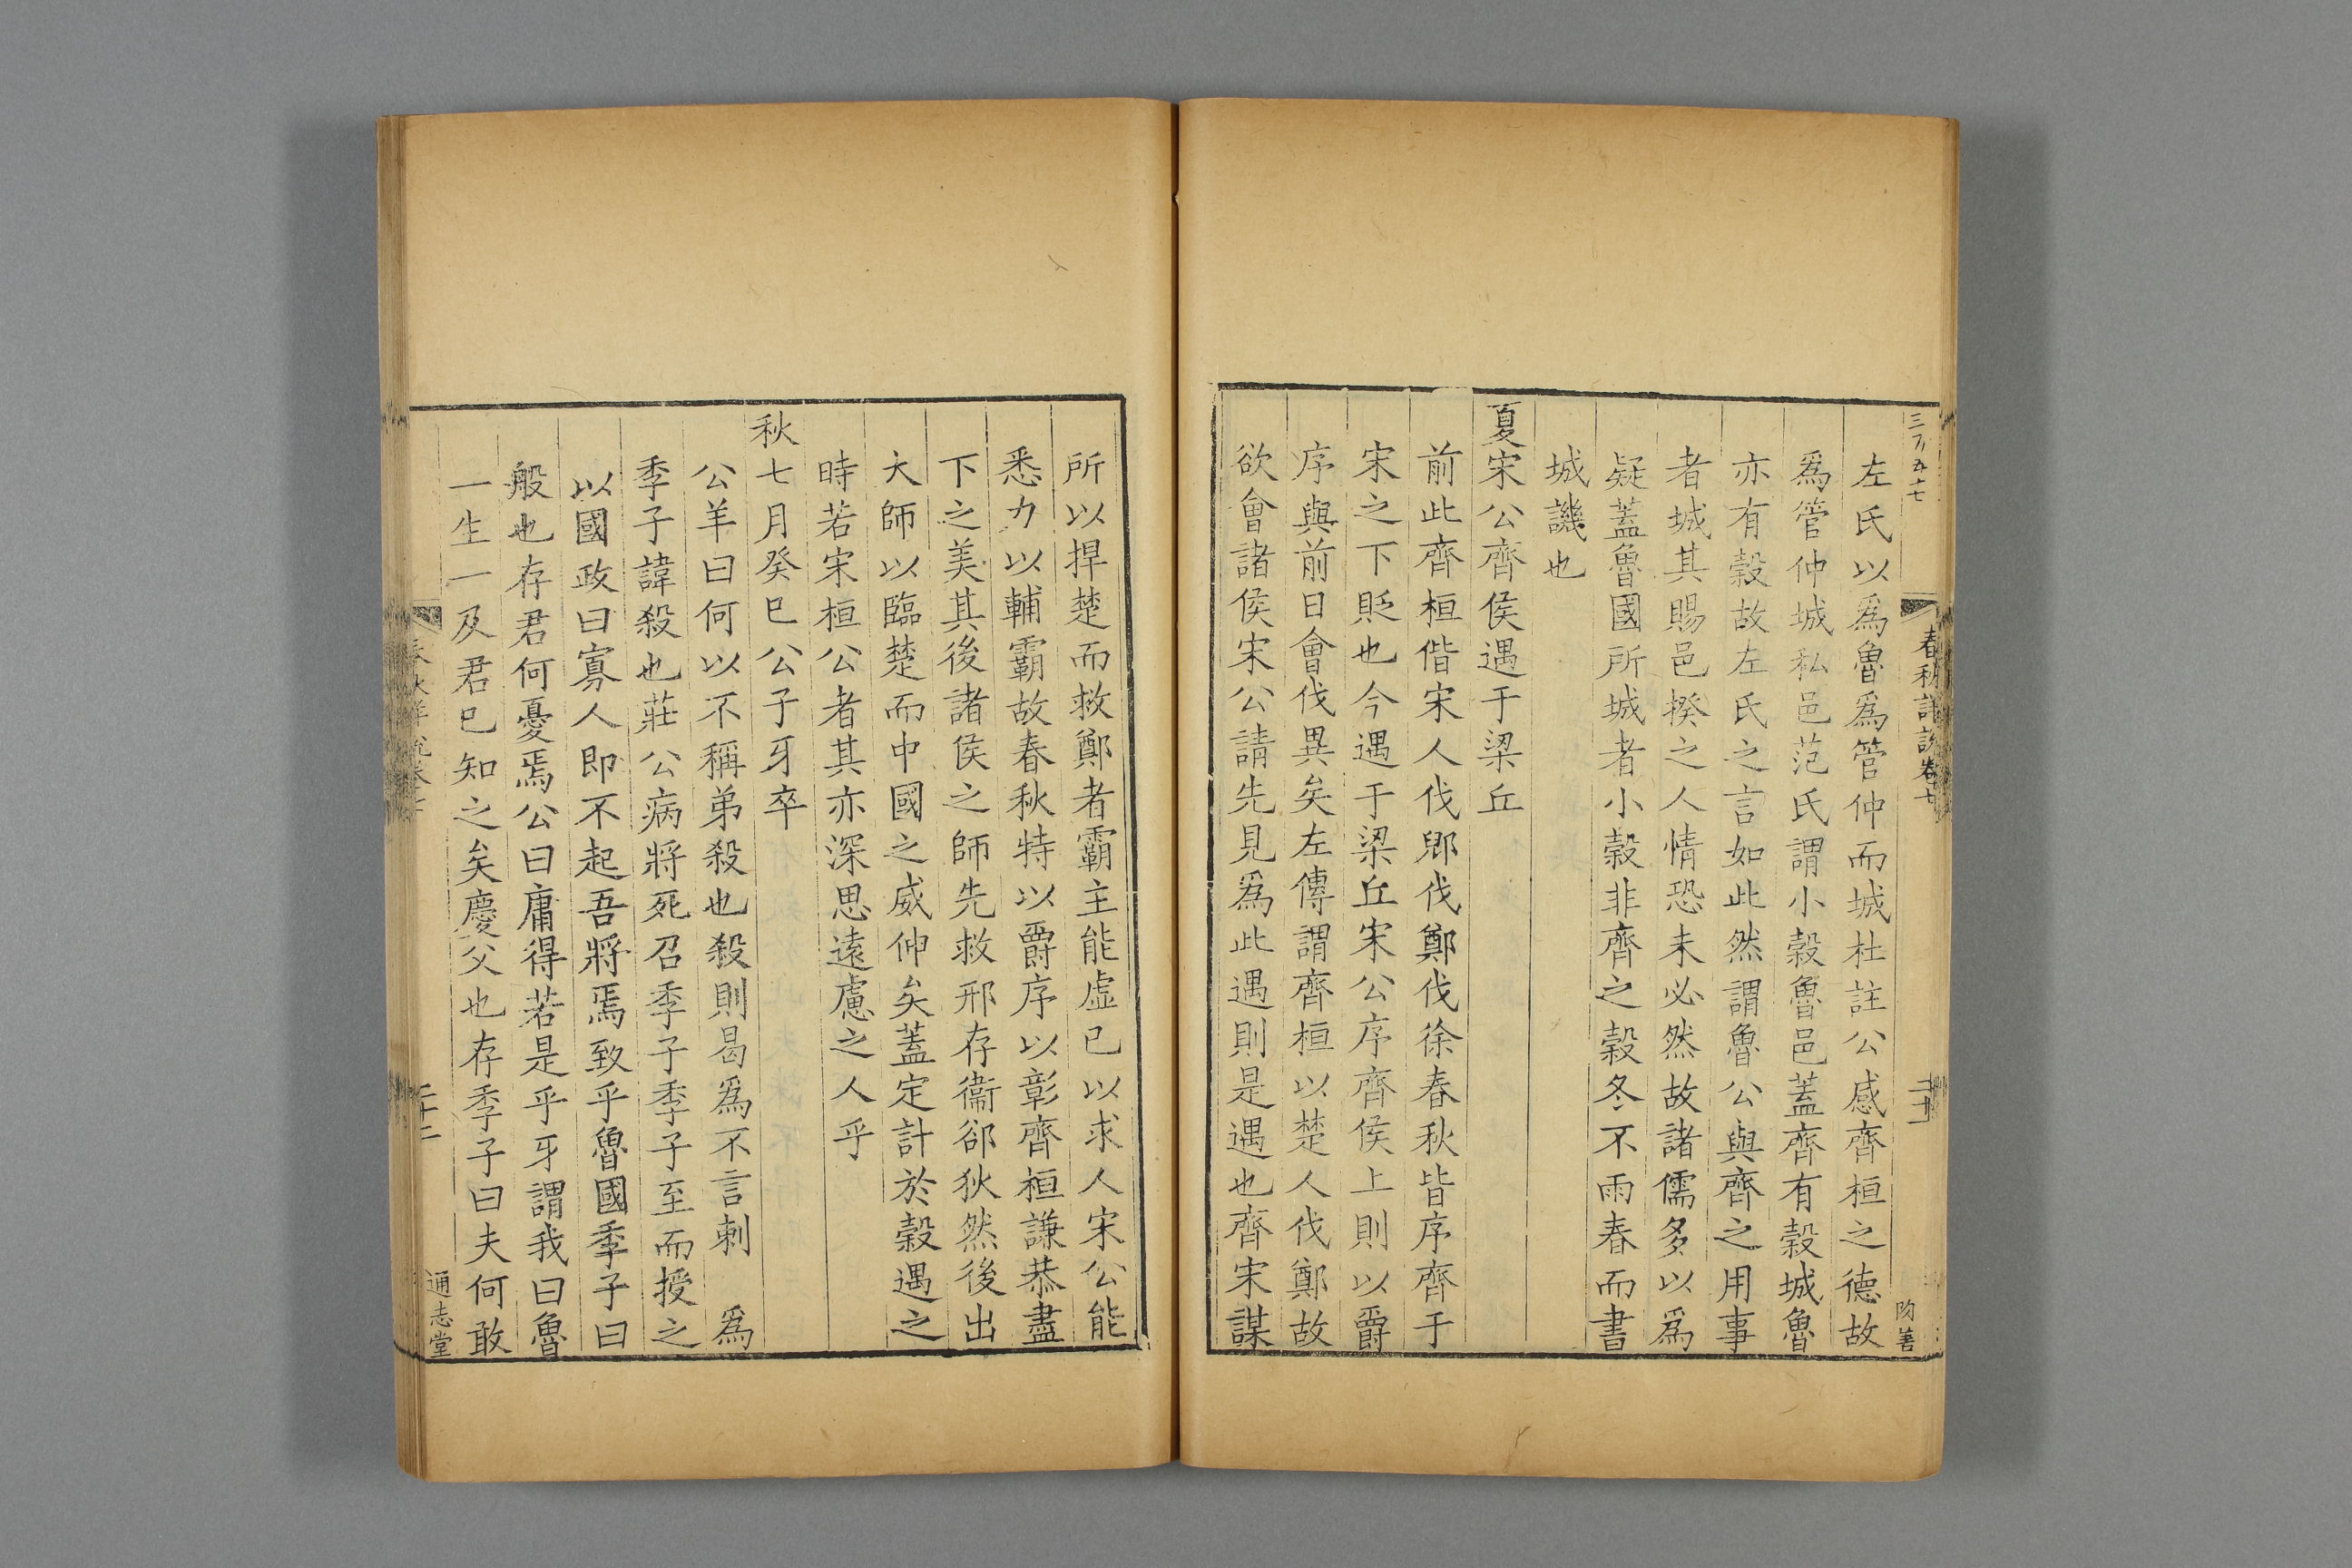 春秋詳說卷十七
左氏以爲魯爲管仲而城杜註公感齊桓之德故
爲管仲城私邑范氏謂小穀魯邑蓋齊有穀城魯
亦有穀故左氏之言如此然謂魯公與齊之用事
者城其賜邑揆之人情恐未必然故諸儒多以爲
疑蓋魯國所城者小穀非齊之穀冬不雨春而書
城譏也
夏宋公齊侯遇于梁丘
前此齊桓偕宋人伐郳伐鄭伐徐春秋皆序齊于
宋之下貶也今遇于梁丘宋公序齊侯上則以爵
序與前日會伐異矣左傳謂齊桓以楚人伐鄭故
欲會諸侯宋公請先見爲此遇則是遇也齊宋謀
所以捍楚而救鄭者霸主能虛已以求人宋公能
悉力以輔霸故春秋特以爵序以彰齊桓謙恭盡
下之美其後諸侯之師先救邢存衞郤狄然後出
大師以臨楚而中國之威伸矣蓋定計於穀遇之
時若宋桓公者其亦深思遠慮之人乎
秋七月癸巳公子牙卒
公羊曰何以不稱弟殺也殺則曷爲不言刺 爲
季子諱殺也莊公病將死召季子季子至而授之
以國政曰寡人即不起吾將焉致乎魯國季子曰
般也存君何憂焉公曰庸得若是乎牙謂我曰魯
一生一及君已知之矣慶父也存季子曰夫何敢
二十二
通志堂